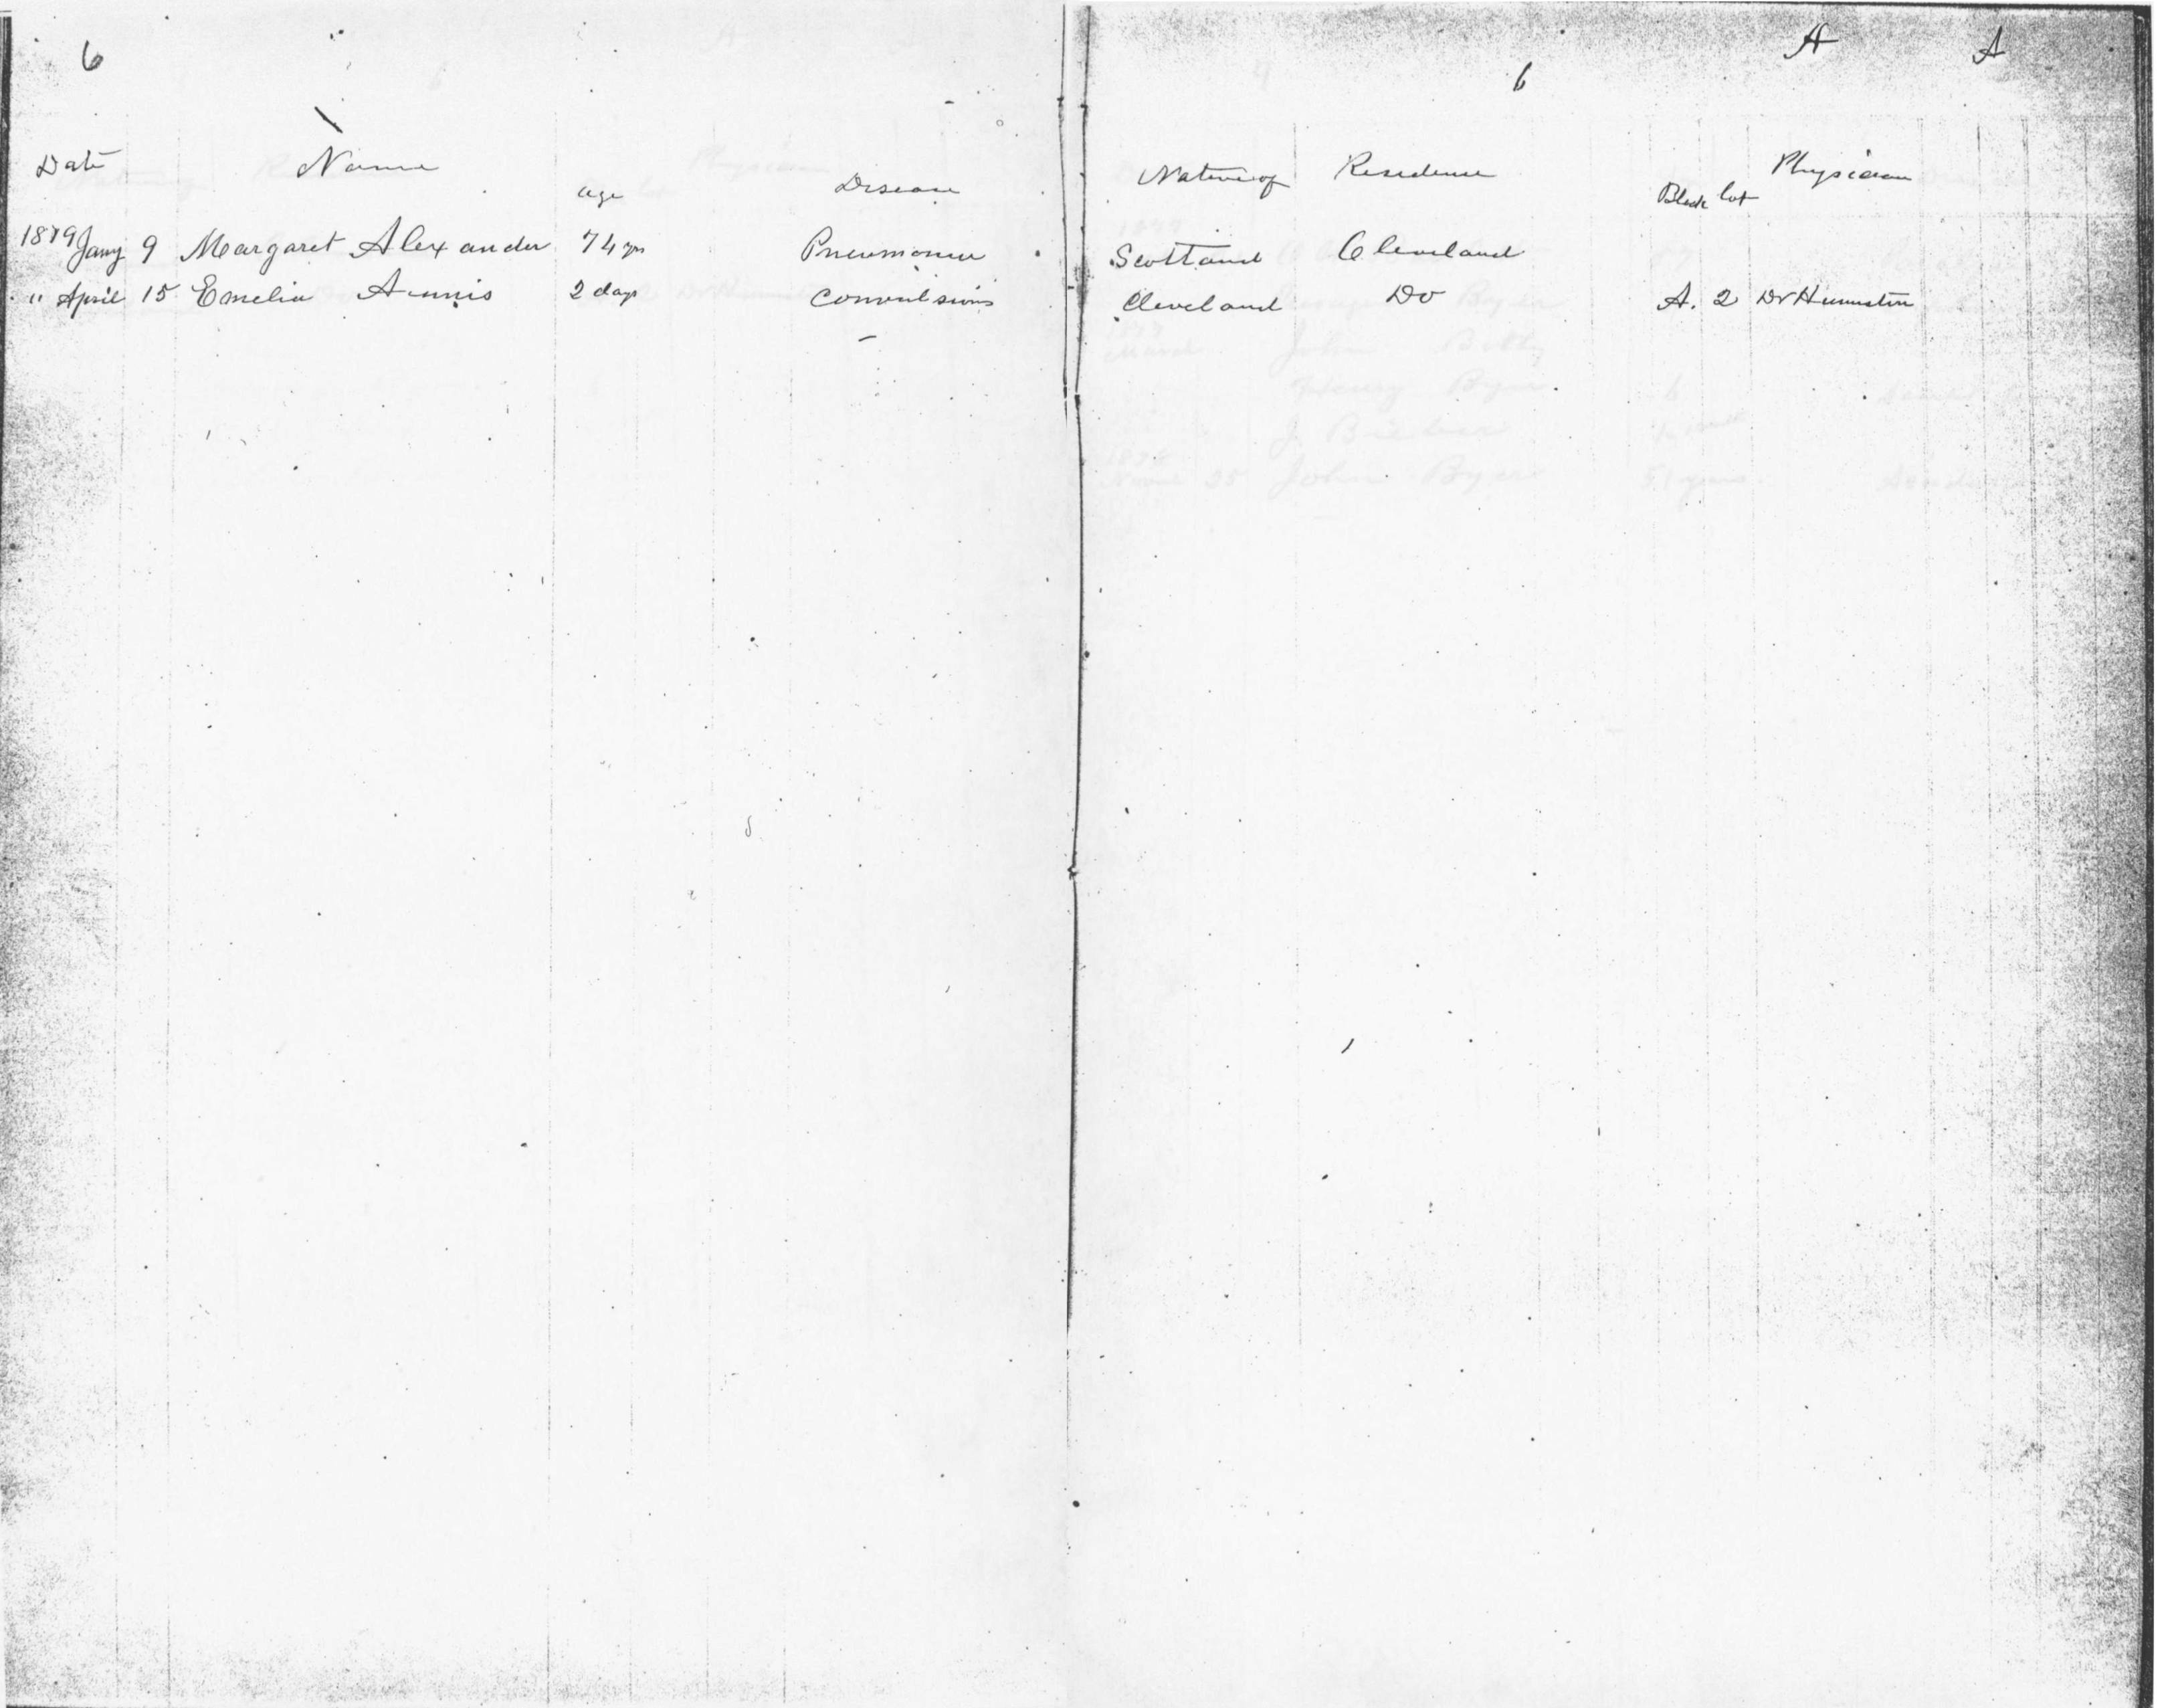 6
6 A A
Date Name age Disease Native of Residence Block lot Physician
1879 Jany 9 Margaret Alexander 74 yrs Pneumonia Scotland Cleveland
" April 15 Emelia Annis 2 days Convulsions Cleveland Do A. 2 Dr Humiston